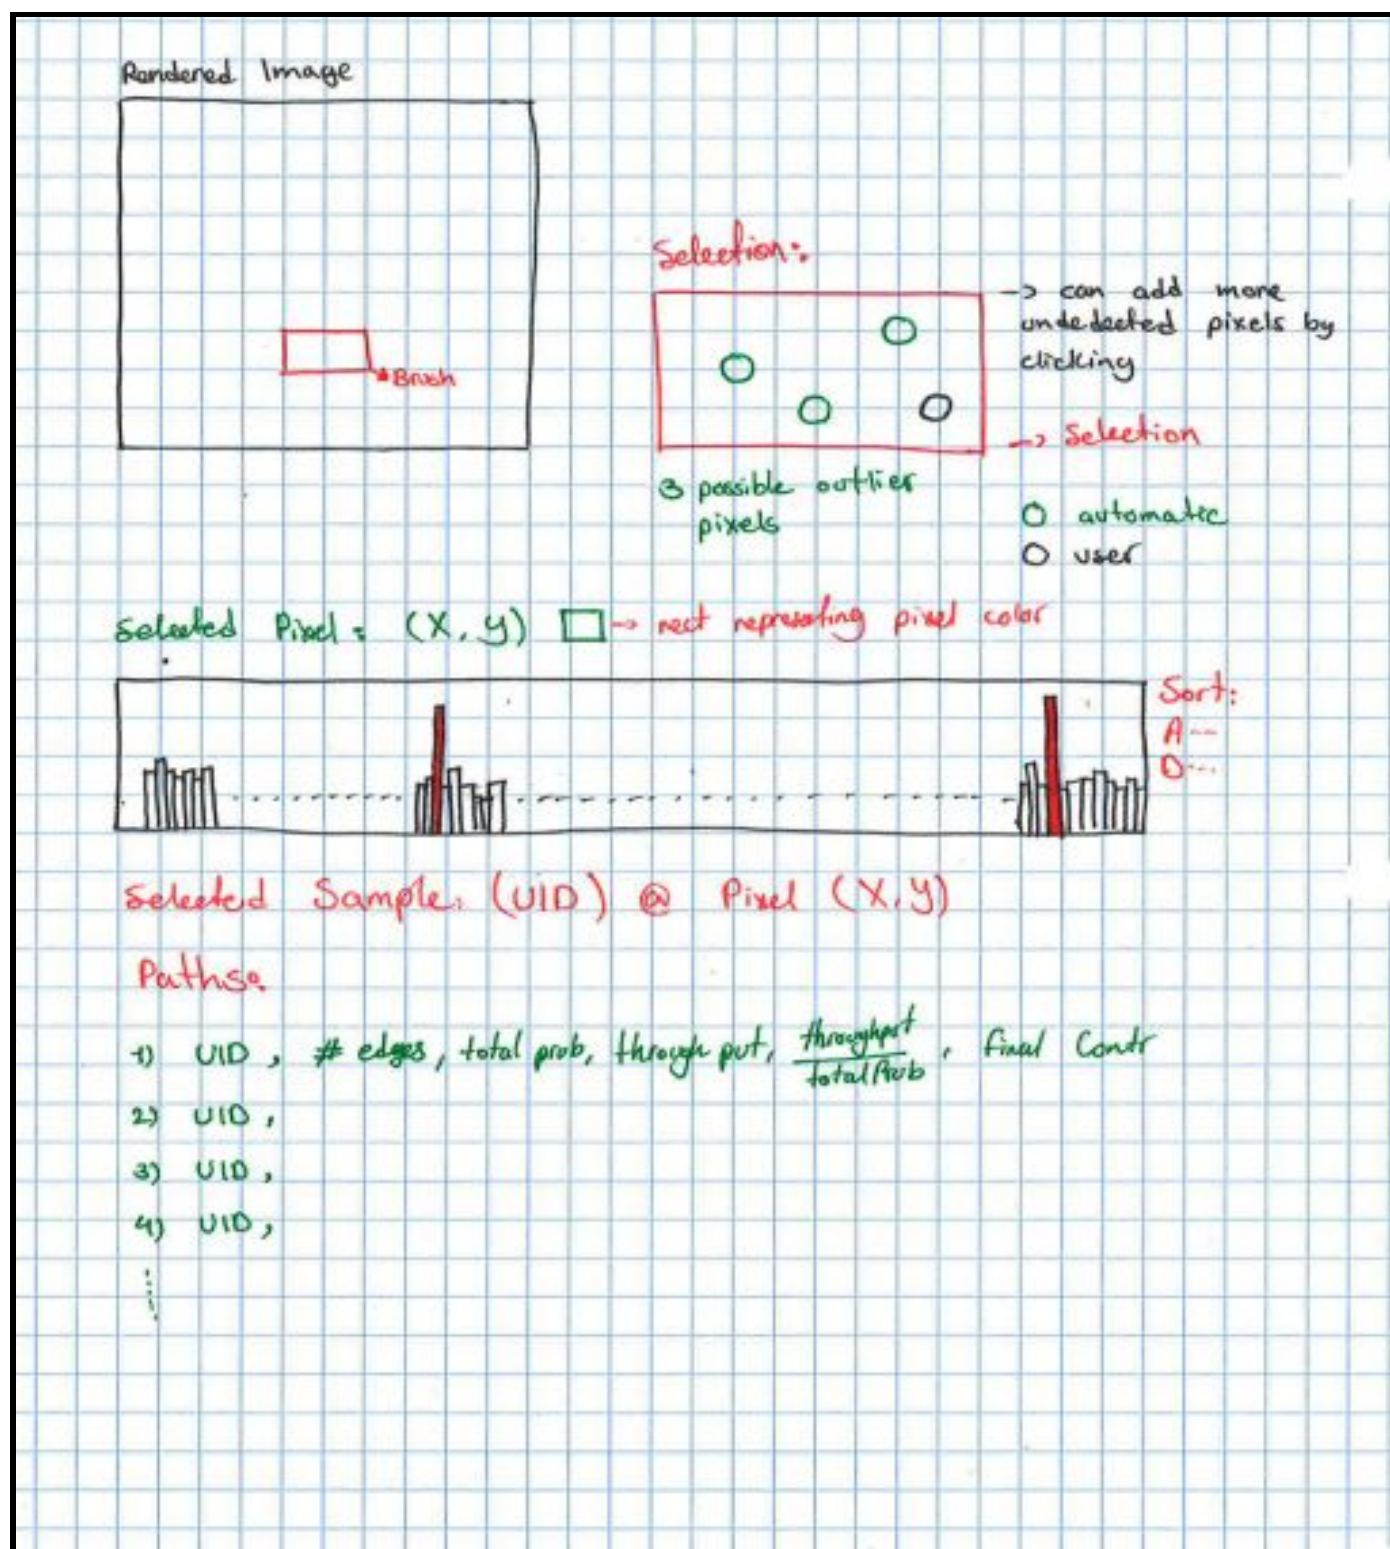 Rendered Image
Brush
Selection:
-> can add more
undedected pixels by
clicking
-> Selection
3 possible outlier
pixels
O automatic
O user
Selected Pixel: (X, Y) -> rect representing pixel color
Sort:
A--
D---
Selected Sample: (UID) @ Pixel (X, Y)
Paths:
1) UID, # edges, total prob, through put, throughput / totalProb, final Contr
2) UID,
3) UID,
4) UID,